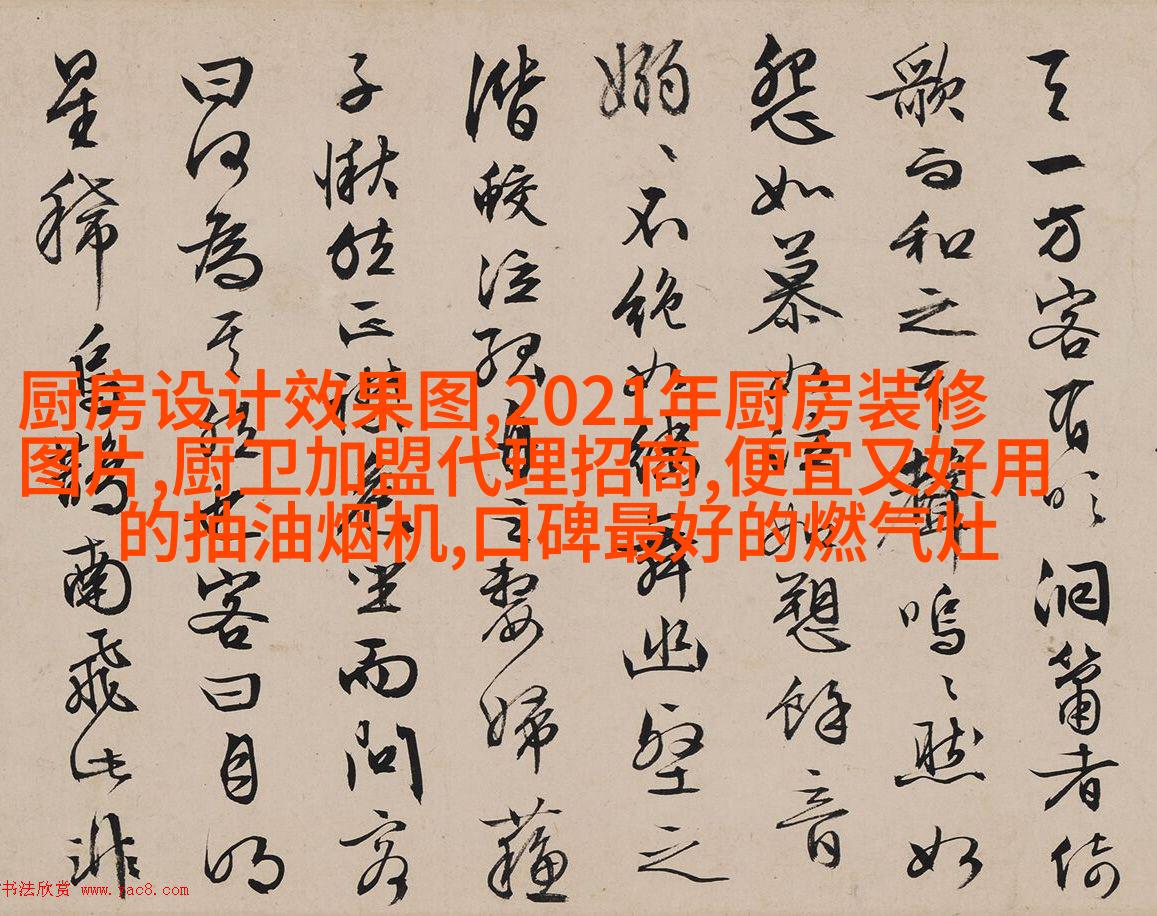 天一方客有吹洞簫者倚
歌而和之其聲嗚〻然如
怨如慕如泣如愬餘音
嫋〻不絕如縷舞幽壑之
潛蛟泣孤舟之嫠婦蘇
子愀然正襟危坐而問客
曰何為其然也客曰月明
星稀烏鵲南飛此非
厨房设计效果图,2021年厨房装修
图片,厨卫加盟代理招商,便宜又好用
的抽油烟机,口碑最好的燃气灶
书法欣赏 www.yac8.com